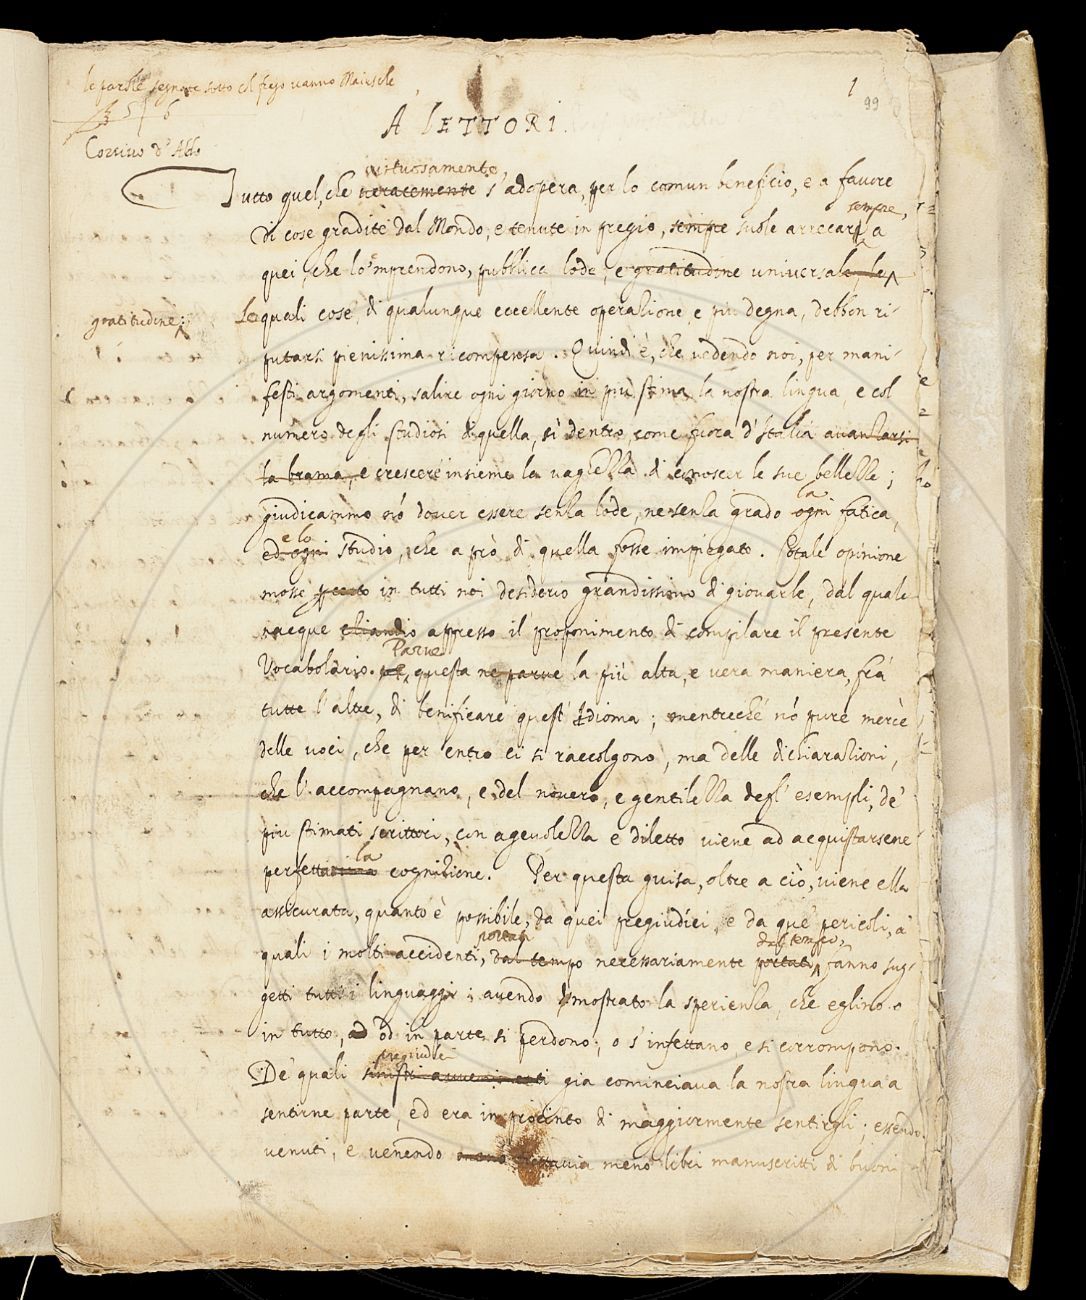 le parole segnate sotto col frego vanno Maiuscole
Corsivo d'Aldo
1
99
A LETTORI.
virtuosamente
Tutto quel, che veracemente s'adopera, per lo comun beneficio, e a favore
sempre,
di cose gradite dal Mondo, e tenute in pregio, sempre suole arrecare a
quei, che lo 'mprendono, pubblica lode, e gratitudine universale, le
gratitudine;
Le quali cose, di qualunque eccellente operazione, e piu degna, debbon ri-
putarsi pienissima ricompensa. Quindi è, che vedendo noi, per mani-
festi argomenti, salire ogni giorno in più stima la nostra lingua, e col
numero degli studiosi di quella, sì dentro, come fuora d'Italia avanzarsi
la brama, e crescere insieme la vaghezza di conoscer le sue bellezze;
la
giudicammo nō dover essere senza lode, ne senza grado ogni fatica,
e lo
ed ogni studio, che a prò di quella fosse impiegato. Cotale opinione
mosse in tutti noi desiderio grandissimo di giovarle, dal quale
nacque eziandio appresso il proponimento di compilare il presente
Parve
Vocabolario. questa ne parve la più alta, e vera maniera, frà
tutte l'altre, di beneficare quest' Idioma; mentreché nō pure mercè
delle voci, che per entro ci si raccolgono, ma delle dichiarazioni,
che l'accompagnano, e del novero, e gentilezza degl' esempli, de'
più stimati scrittori, con agevolezza e diletto viene ad acquistarsene
la
perfettissima cognizione. Per questa guisa, oltre a ciò, viene ella
assicurata, quanto è possibile, da quei pregiudici, e da que' pericoli, a'
portati
dal tempo,
quali i molti accidenti, dal tempo necessariamente portati, fanno sug-
getti tutti i linguaggi; avendo dimostrato la sperienza, che eglino o
in tutto, ad od in parte si perdono; o s'infettano, e si corrompono.
pregiudici
De' quali sinistri avvenimenti gia cominciava la nostra lingua a
sentirne parte, ed era in procinto di maggiormente sentirgli; essendo
venuti, e venendo tuttavia meno libri manuscritti di buoni